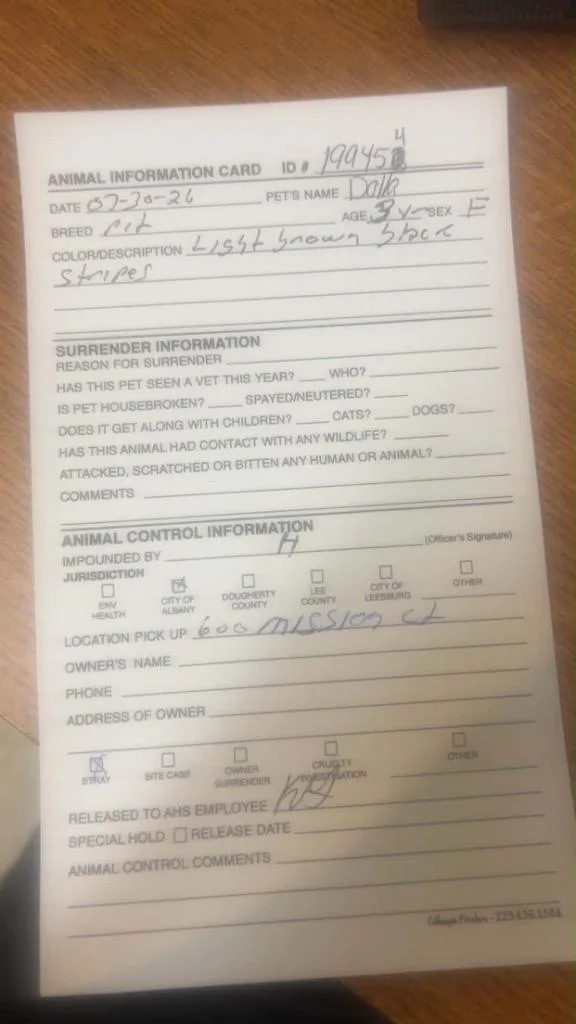 4
ANIMAL INFORMATION CARD ID # 19945
DATE 07-30-26 PET'S NAME Dalla
BREED Pit AGE 3 yr SEX F
COLOR/DESCRIPTION Light brown black
stripes
SURRENDER INFORMATION
REASON FOR SURRENDER
HAS THIS PET SEEN A VET THIS YEAR? WHO?
IS PET HOUSEBROKEN? SPAYED/NEUTERED?
DOES IT GET ALONG WITH CHILDREN? CATS? DOGS?
HAS THIS ANIMAL HAD CONTACT WITH ANY WILDLIFE?
ATTACKED, SCRATCHED OR BITTEN ANY HUMAN OR ANIMAL?
COMMENTS
ANIMAL CONTROL INFORMATION
IMPOUNDED BY H (Officer's Signature)
JURISDICTION
ENV HEALTH CITY OF ALBANY DOUGHERTY COUNTY LEE COUNTY CITY OF LEESBURG OTHER
LOCATION PICK UP 600 MISSION Ct
OWNER'S NAME
PHONE
ADDRESS OF OWNER
STRAY BITE CASE OWNER SURRENDER CRUELTY INVESTIGATION OTHER
RELEASED TO AHS EMPLOYEE
SPECIAL HOLD RELEASE DATE
ANIMAL CONTROL COMMENTS
229.436.1584